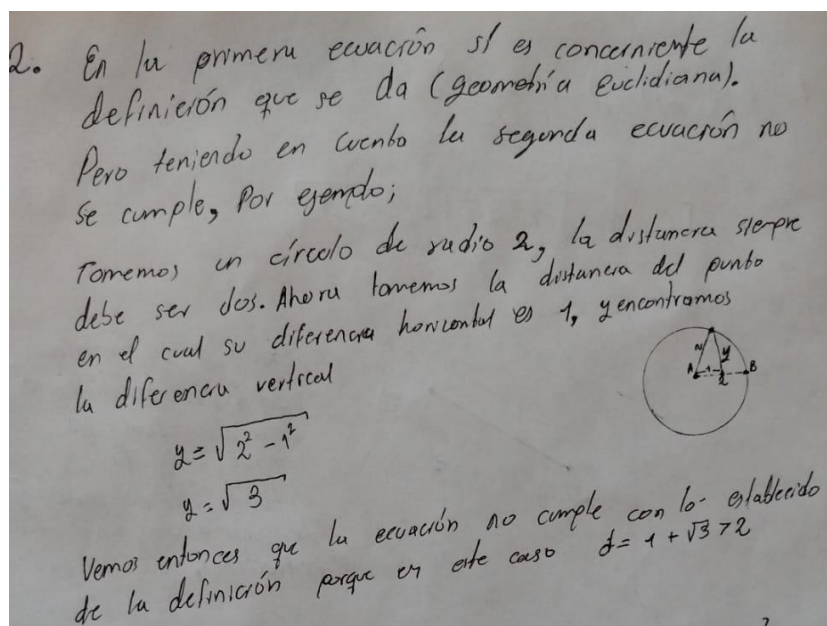 2. En la primera ecuación sí es concerniente la
definición que se da (geometría Euclidiana).
Pero teniendo en cuenta la segunda ecuación no
se cumple, Por ejemplo;
Tomemos un círculo de radio 2, la distancia siempre
debe ser dos. Ahora tomemos la distancia del punto
en el cual su diferencia horizontal es 1, y encontramos
la diferencia vertical
2 y
A 1 B
2
y = √2² - 1²
y = √3
Vemos entonces que la ecuación no cumple con lo establecido
de la definición porque en este caso d = 1 + √3 > 2